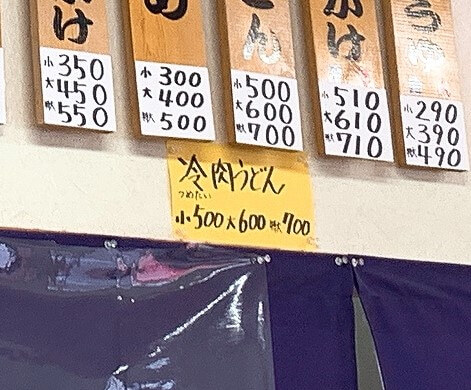 け
小 350
大 450
特大 550
め
小 300
大 400
特大 500
どん
小 500
大 600
特大 700
かけ
小 510
大 610
特大 710
小 290
大 390
特大 490
冷肉うどん
つめたい
小500 大600 特大700